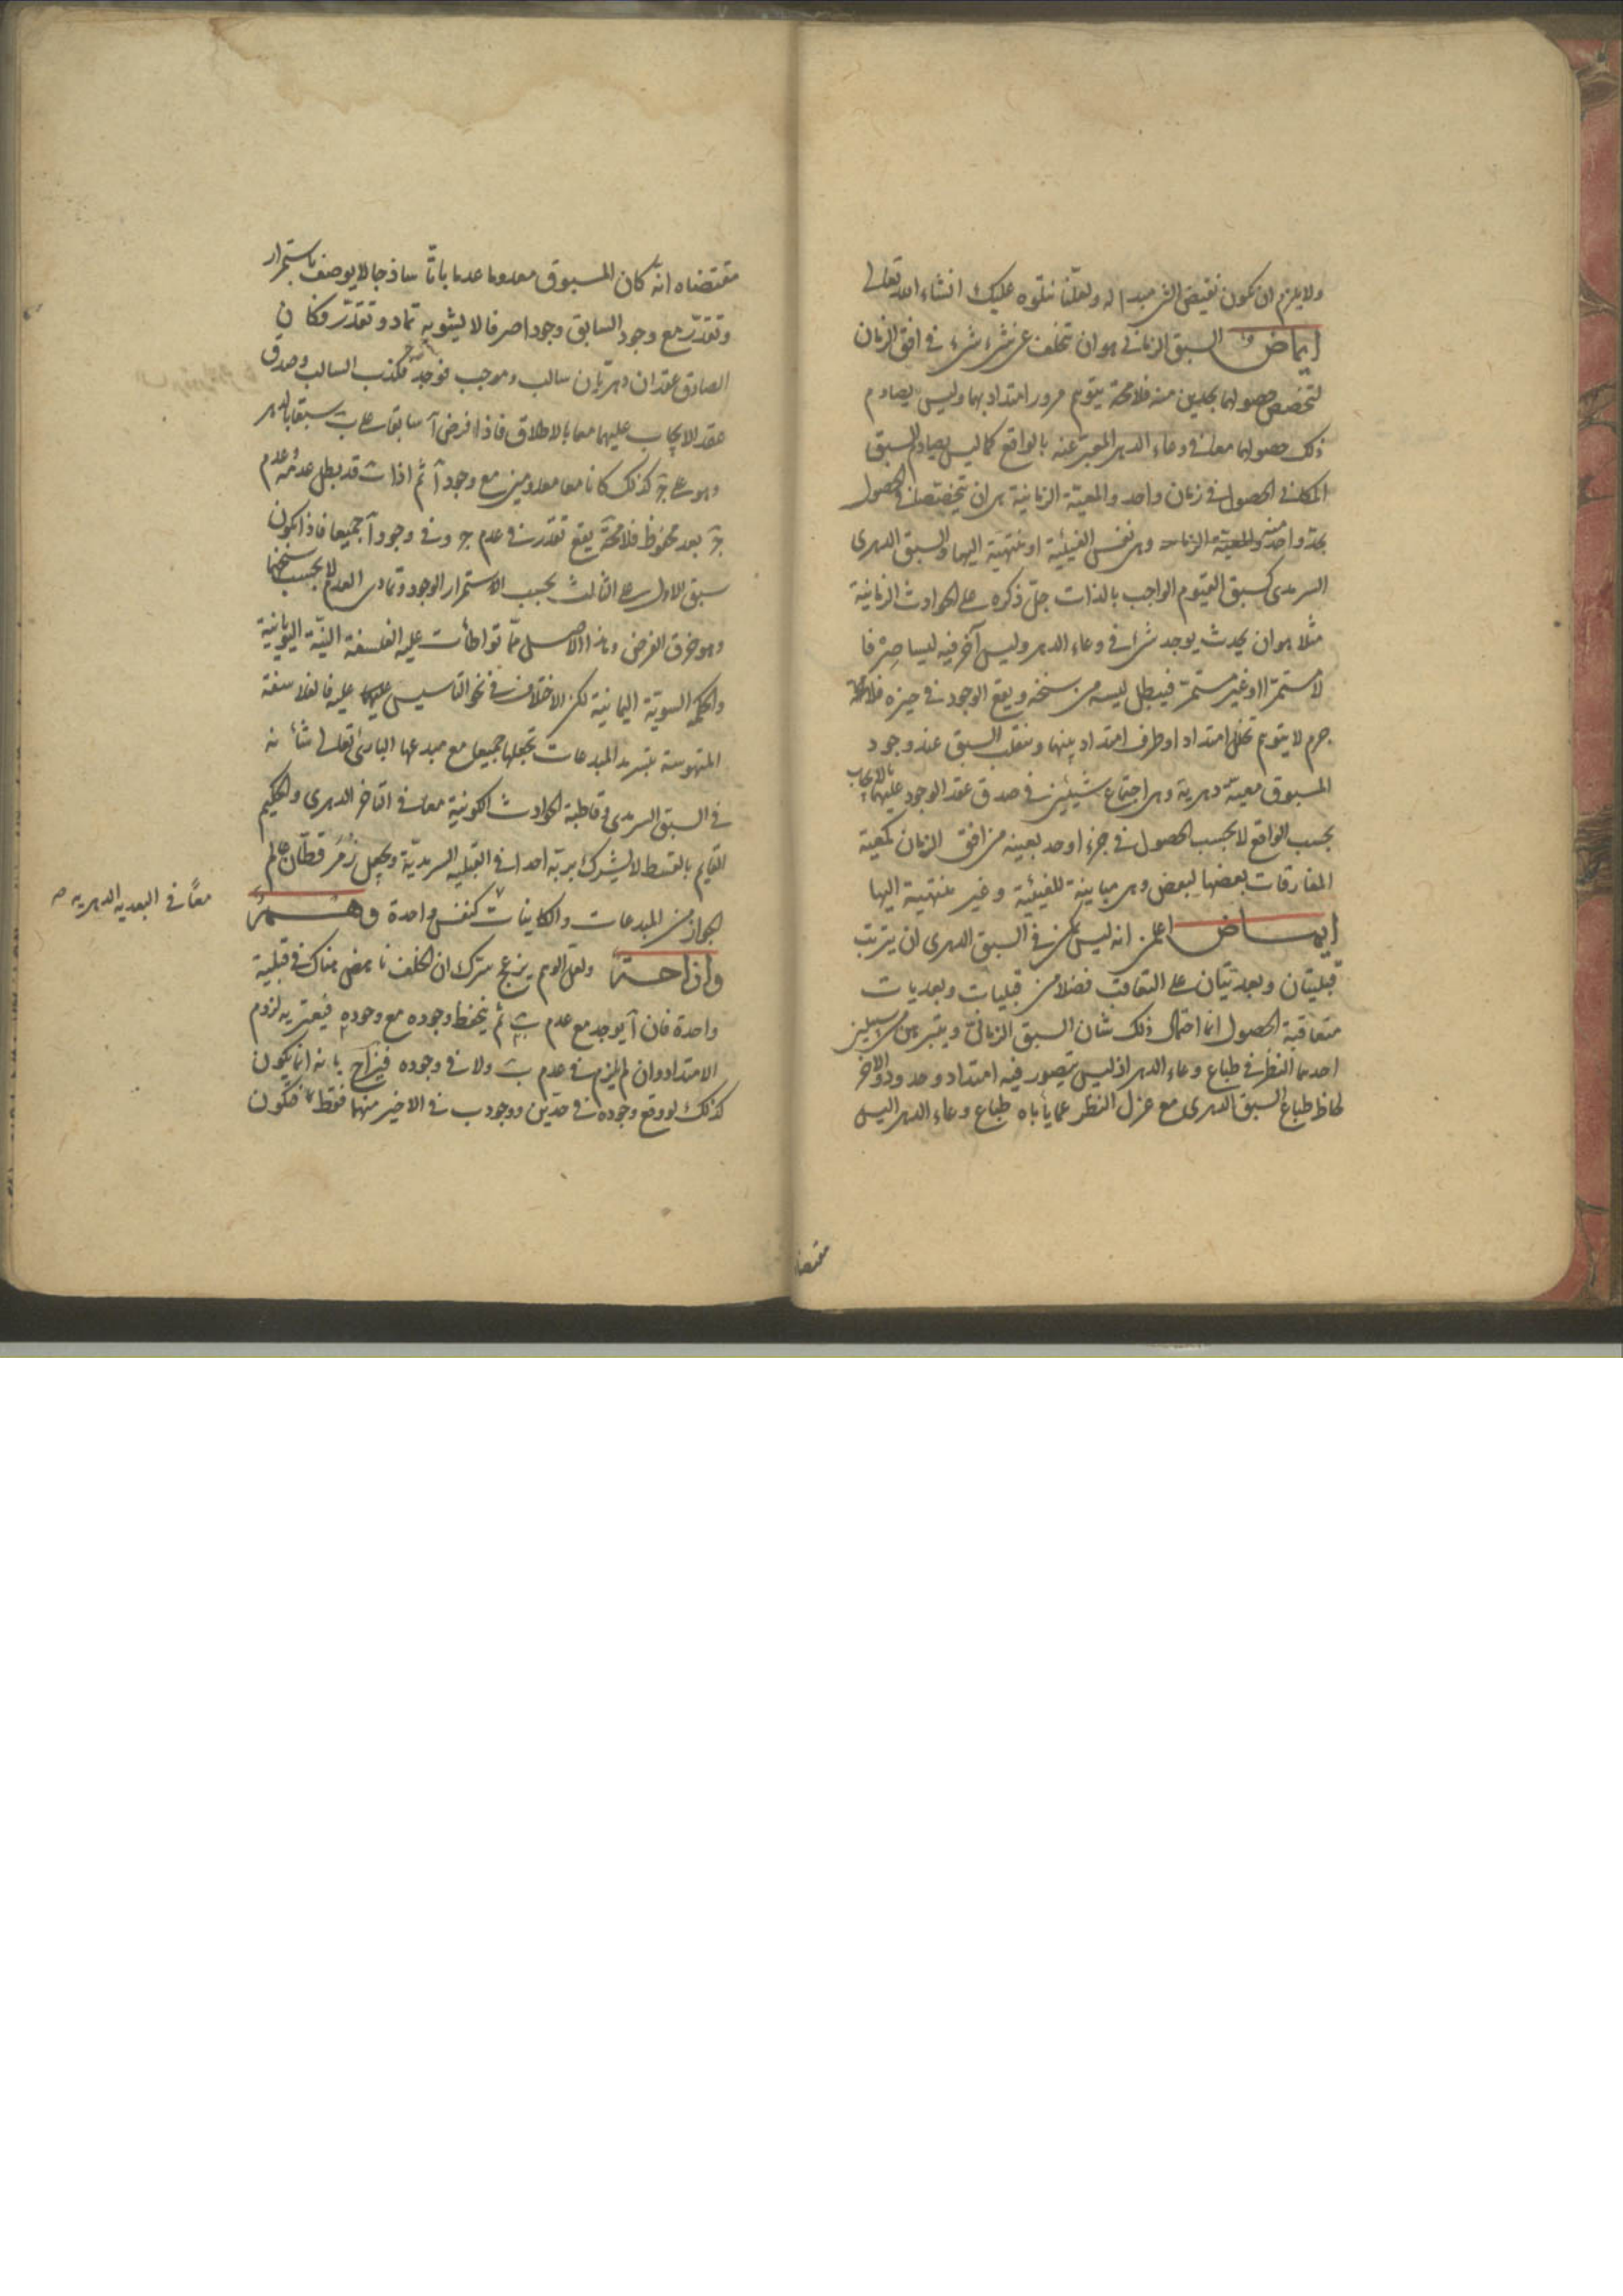 ولا يلزم ان يكون نقيض الشئ مبدا له ولعلنا نتلوه عليك انشاء الله تعالى
ايماض السبق الزماني هو ان تخلف عن شئ شئ في افق الزمان
لتخصص حصولهما بحدين منه فلا محة يتوهم مرور امتداد بهما وليس يصادم
ذلك حصولهما معا في وعاء الدهر المعبر عنه بالواقع كما ليس يصادم السبق
المكاني الحصول في زمان واحد والمعية الزمانية هي ان يتخصصا في الحصول
بحد واحد منه وهي نفس الفيئية او منتهية اليها والسبق الدهري
السرمدي كسبق القيوم الواجب بالذات جل ذكره على الحوادث الزمانية
مثلا هو ان يحدث يوجد شئ في وعاء الدهر وليس آخر فيه ليسا صرفا
لا مستمرا او غير مستمر فيبطل ليسه من سنخه ويقع الوجود في حيزه فلا محة
جرم لا يتوهم تخلل امتداد او طرف امتداد بينهما وينقلب السبق عند وجود
المسبوق معية دهرية وهي اجتماع شيئين في صدق عقد الوجود عليهما بالايجاب
بحسب الواقع لا بحسب الحصول في جزء او حد بعينه من افق الزمان كمعية
المفارقات بعضها لبعض وهي مباينة للفيئية وغير منتهية اليها
ايماض اعلمن انه ليس يمكن في السبق الدهري ان يترتب
قبليتان وبعديتان على التعاقب فضلا من قبليات وبعديات
متعاقبة الحصول انما احتمال ذلك شان السبق الزماني ويتبرهن من سبيلين
احدهما النظر في طباع وعاء الدهر اذ ليس يتصور فيه امتداد وحدود والاخر
لحاظ طباع السبق الدهري مع عزل النظر عما يأباه طباع وعاء الدهر اليس
مقتضا
مقتضاه انه كان المسبوق معدوما عدما باتا ساذجا لا يوصف باستمرار
وتقدر مع وجود السابق وجودا صرفا لا يشوبه تماد وتقدر فكان
الصادق عقدان دهريان سالب وموجب فوجد فكذب السالب وصدق
عقد الايجاب عليهما معا بالاطلاق فاذا فرض آ سابقا على ب سبقا بالدهر
وهو على ج كذلك كانا معا معدومين مع وجود آ ثم اذا ب قد بطل عدمه وعدم
ج بعد محفوظ فلا محة يقع تقدر في عدم ج وفي وجود آ جميعا فاذا يكون
سبق الاول على الثالث بحسب الاستمرار الوجود وتمادي العدم لا بحسب سنخهما
وهو خرق الفرض وهذا الاصل مما تواطأت عليه الفلسفة النية اليونانية
والحكمة السوية اليمانية لكن الاختلاف في نحو التاسيس عليه فالفلاسفة
المتهوسة بتسرمد المبدعات تجعلها جميعا مع مبدعها البارئ تعالى شأنه
في السبق السرمدي وقاطبة الحوادث الكونية معا في التاخر الدهري والحكيم
القايم بالقسط لا يشرك بربه احدا في القبلية السرمدية ويجعل زمر قطان عالم
الجواز من المبدعات والكاينات كنفس واحدة وهم
معا في البعدية الدهرية صح
وازاحة ولعل الوهم يزعج سرك ان الخلف ناهض هناك في قبلية
واحدة فان آ يوجد مع عدم ب ثم ينحفظ وجوده مع وجوده فيعتريه لزوم
الامتداد وان لم يلزم في عدم ب ولا في وجوده فيزاح بانه انما يكون
كذلك لو وقع وجوده في حدين ووجود ب في الاخير منهما فقط فيكون